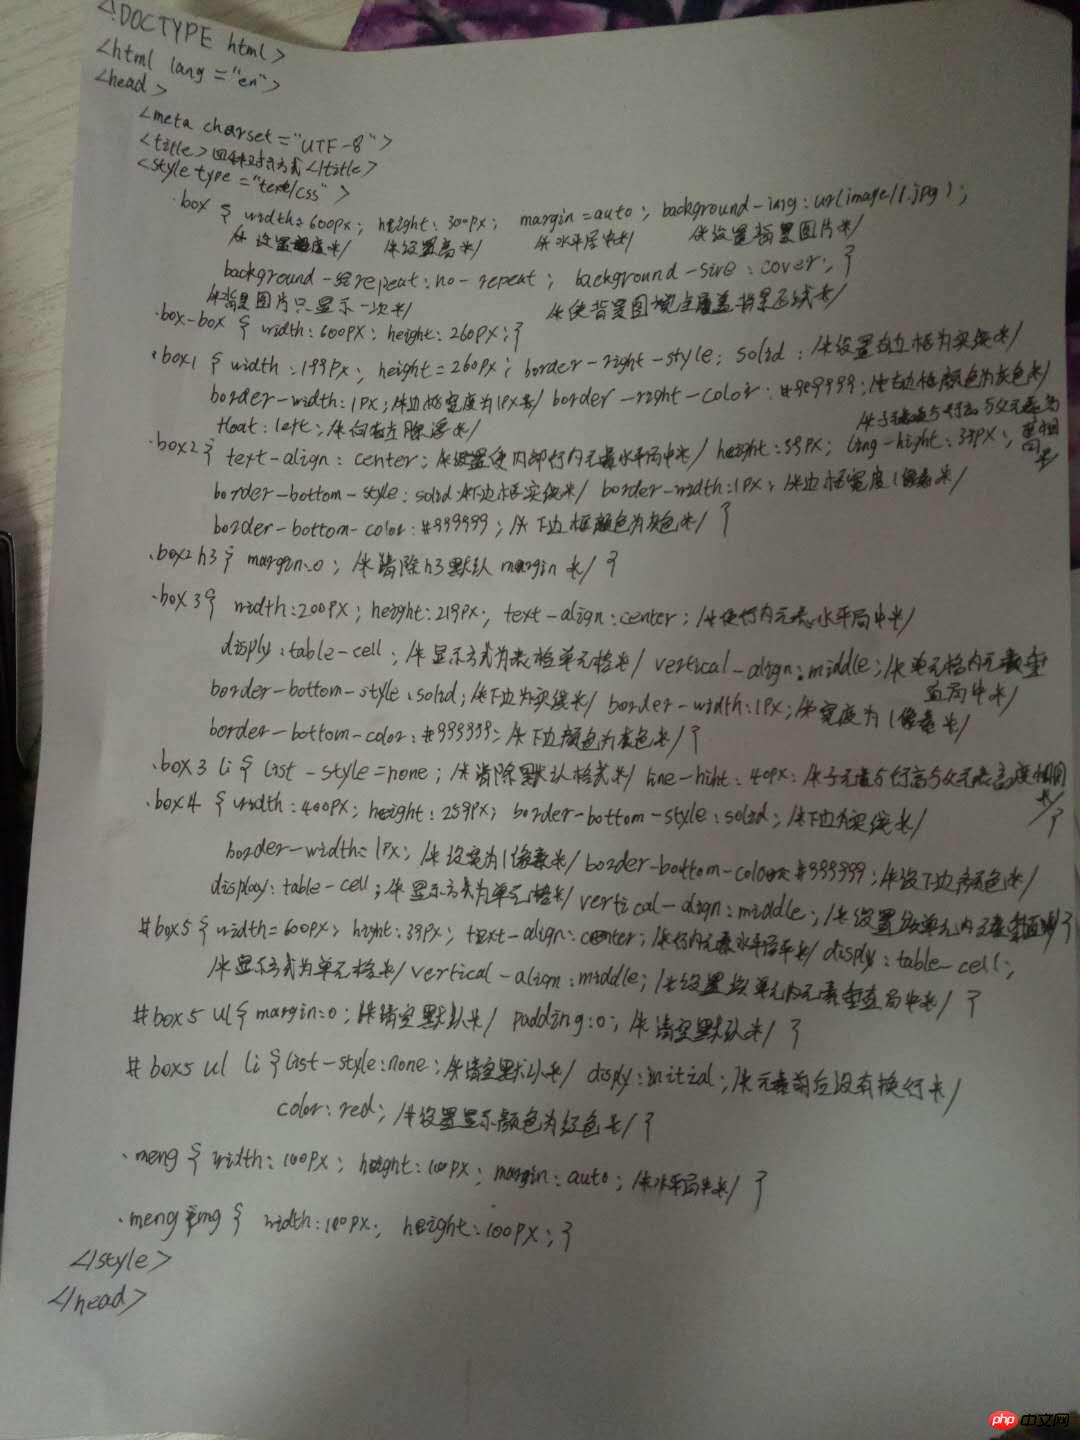 <!DOCTYPE html>
<html lang="en">
<head>
<meta charset="UTF-8">
<title>四种对齐方式</title>
<style type="text/css">
.box { width:600px; height:300px; margin=auto; background-img:url(image/1.jpg);
/*设置宽度*/ /*设置高*/ /*水平居中*/ /*设置背景图片*/
background-repeat:no-repeat; background-size:cover; }
/*背景图片只显示一次*/ /*使背景图完全覆盖背景区域*/
.box-box { width:600px; height:260px; }
.box1 { width:199px; height=260px; border-right-style:solid; /*设置右边框为实线*/
border-width:1px; /*边框宽度为1px*/ border-right-color:#999999; /*右边框颜色为灰色*/
float:left; /*向左浮*/ /*子行高与父元素高
.box2 { text-align:center; /*设置使内部行内元素水平居中*/ height:39px; ling-hight:39px; 相同*/
border-bottom-style:solid /*下边框实线*/ border-width:1px; /*边框宽度1像素*/
border-bottom-color:#999999; /*下边框颜色为灰色*/ }
.box2 h3 { margin:0; /*清除h3默认margin*/ }
.box3 { width:200px; height:219px; text-align:center; /*使行内元素水平居中*/
disply:table-cell; /*显示方式为表格单元格*/ vertical-align:middle; /*单元格内元素垂
直居中*/
border-bottom-style:solid; /*下边为实线*/ border-width:1px; /*宽度为1像素*/
border-bottom-color:#999999; /*下边颜色为灰色*/ }
.box3 li { list-style=none; /*清除默认格式*/ line-hiht:40px; /*子元素与行高与父元素高度相同
*/ }
.box4 { width:400px; height:259px; border-bottom-style:solid; /*下边为实线*/
border-width=1px; /*设宽为1像素*/ border-bottom-color:#999999; /*设下边颜色*/
display:table-cell; /*显示方式为单元格*/ vertical-align:middle; /*设置单元内元素垂直}
#box5 { width=600px; hight:39px; text-align:center; /*行内元素水平居中*/ display:table-cell;
/*显示方式为单元格*/ vertical-align:middle; /*设置单元内元素垂直居中*/ }
#box5 ul { margin:0; /*清空默认*/ padding:0; /*清空默认*/ }
#box5 ul li { list-style:none; /*清空默认*/ disply:initial; /*元素前后没有换行*/
color:red; /*设置显示颜色为红色*/ }
.meng { width:100px; height:100px; margin:auto; /*水平居中*/ }
.meng img { width:100px; height:100px; }
</style>
</head>
php中文网